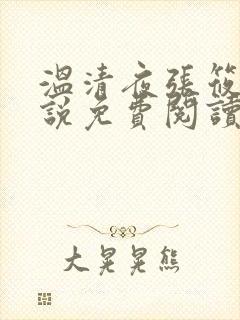 溫清夜張筱
說免費閱讀
大晃晃熊